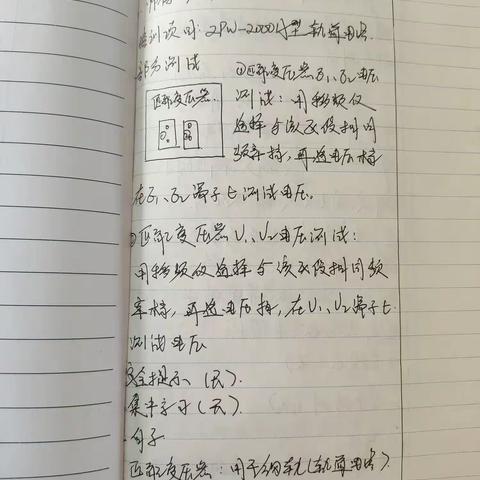 培训项目: ZPW-2000A型 轨道电路
部分测试
①匹配变压器E1、E2电压
匹配变压器
测试: 用移频仪
选择与该区段相同
频率档, 再选电压档
在E1、E2端子上测试电压。
②匹配变压器U1、U2电压测试:
用移频仪选择与该区段相同频
率档, 再选电压档, 在U1、U2端子上
测试电压
安全提示、(天).
集中学习(天).
句子
匹配变压器: 用于钢轨(轨道电路)